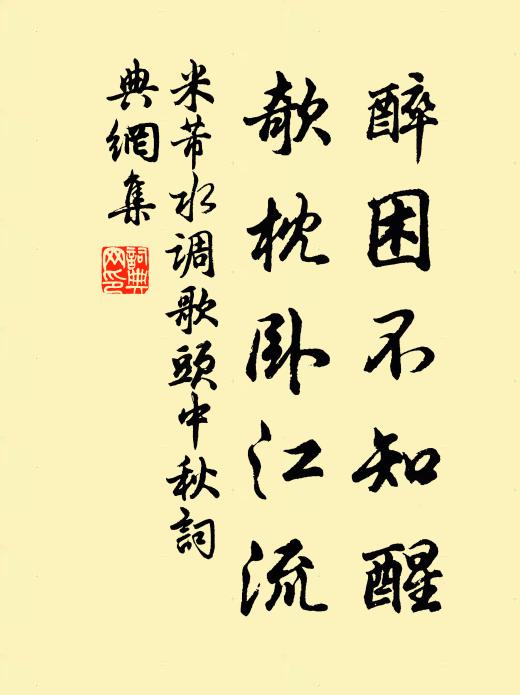 醉困不知醒
欹枕卧江流
米芾水调歌頭中秋詞
典網集
詞典
网印